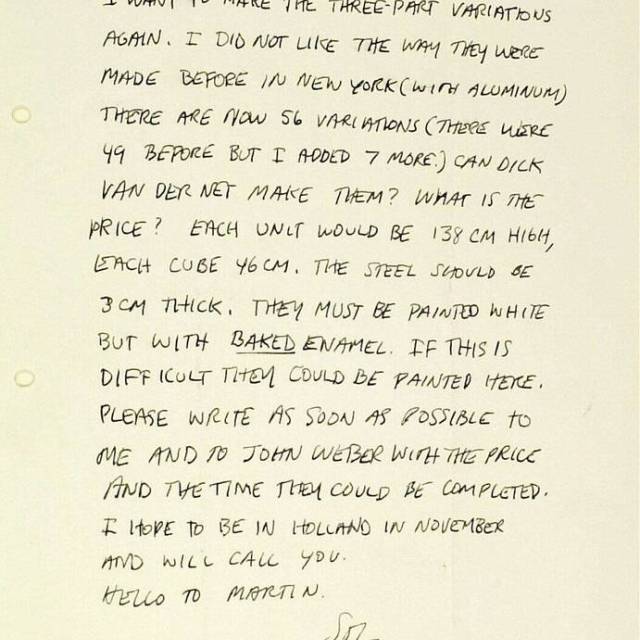 I WANT TO MAKE THE THREE-PART VARIATIONS
AGAIN. I DID NOT LIKE THE WAY THEY WERE
MADE BEFORE IN NEW YORK (WITH ALUMINUM)
THERE ARE NOW 56 VARIATIONS (THERE WERE
49 BEFORE BUT I ADDED 7 MORE.) CAN DICK
VAN DER NET MAKE THEM? WHAT IS THE
PRICE? EACH UNIT WOULD BE 138 CM HIGH,
EACH CUBE 46 CM. THE STEEL SHOULD BE
3 CM THICK. THEY MUST BE PAINTED WHITE
BUT WITH BAKED ENAMEL. IF THIS IS
DIFFICULT THEY COULD BE PAINTED HERE.
PLEASE WRITE AS SOON AS POSSIBLE TO
ME AND TO JOHN WEBER WITH THE PRICE
AND THE TIME THEY COULD BE COMPLETED.
I HOPE TO BE IN HOLLAND IN NOVEMBER
AND WILL CALL YOU.
HELLO TO MARTIN.
SOL